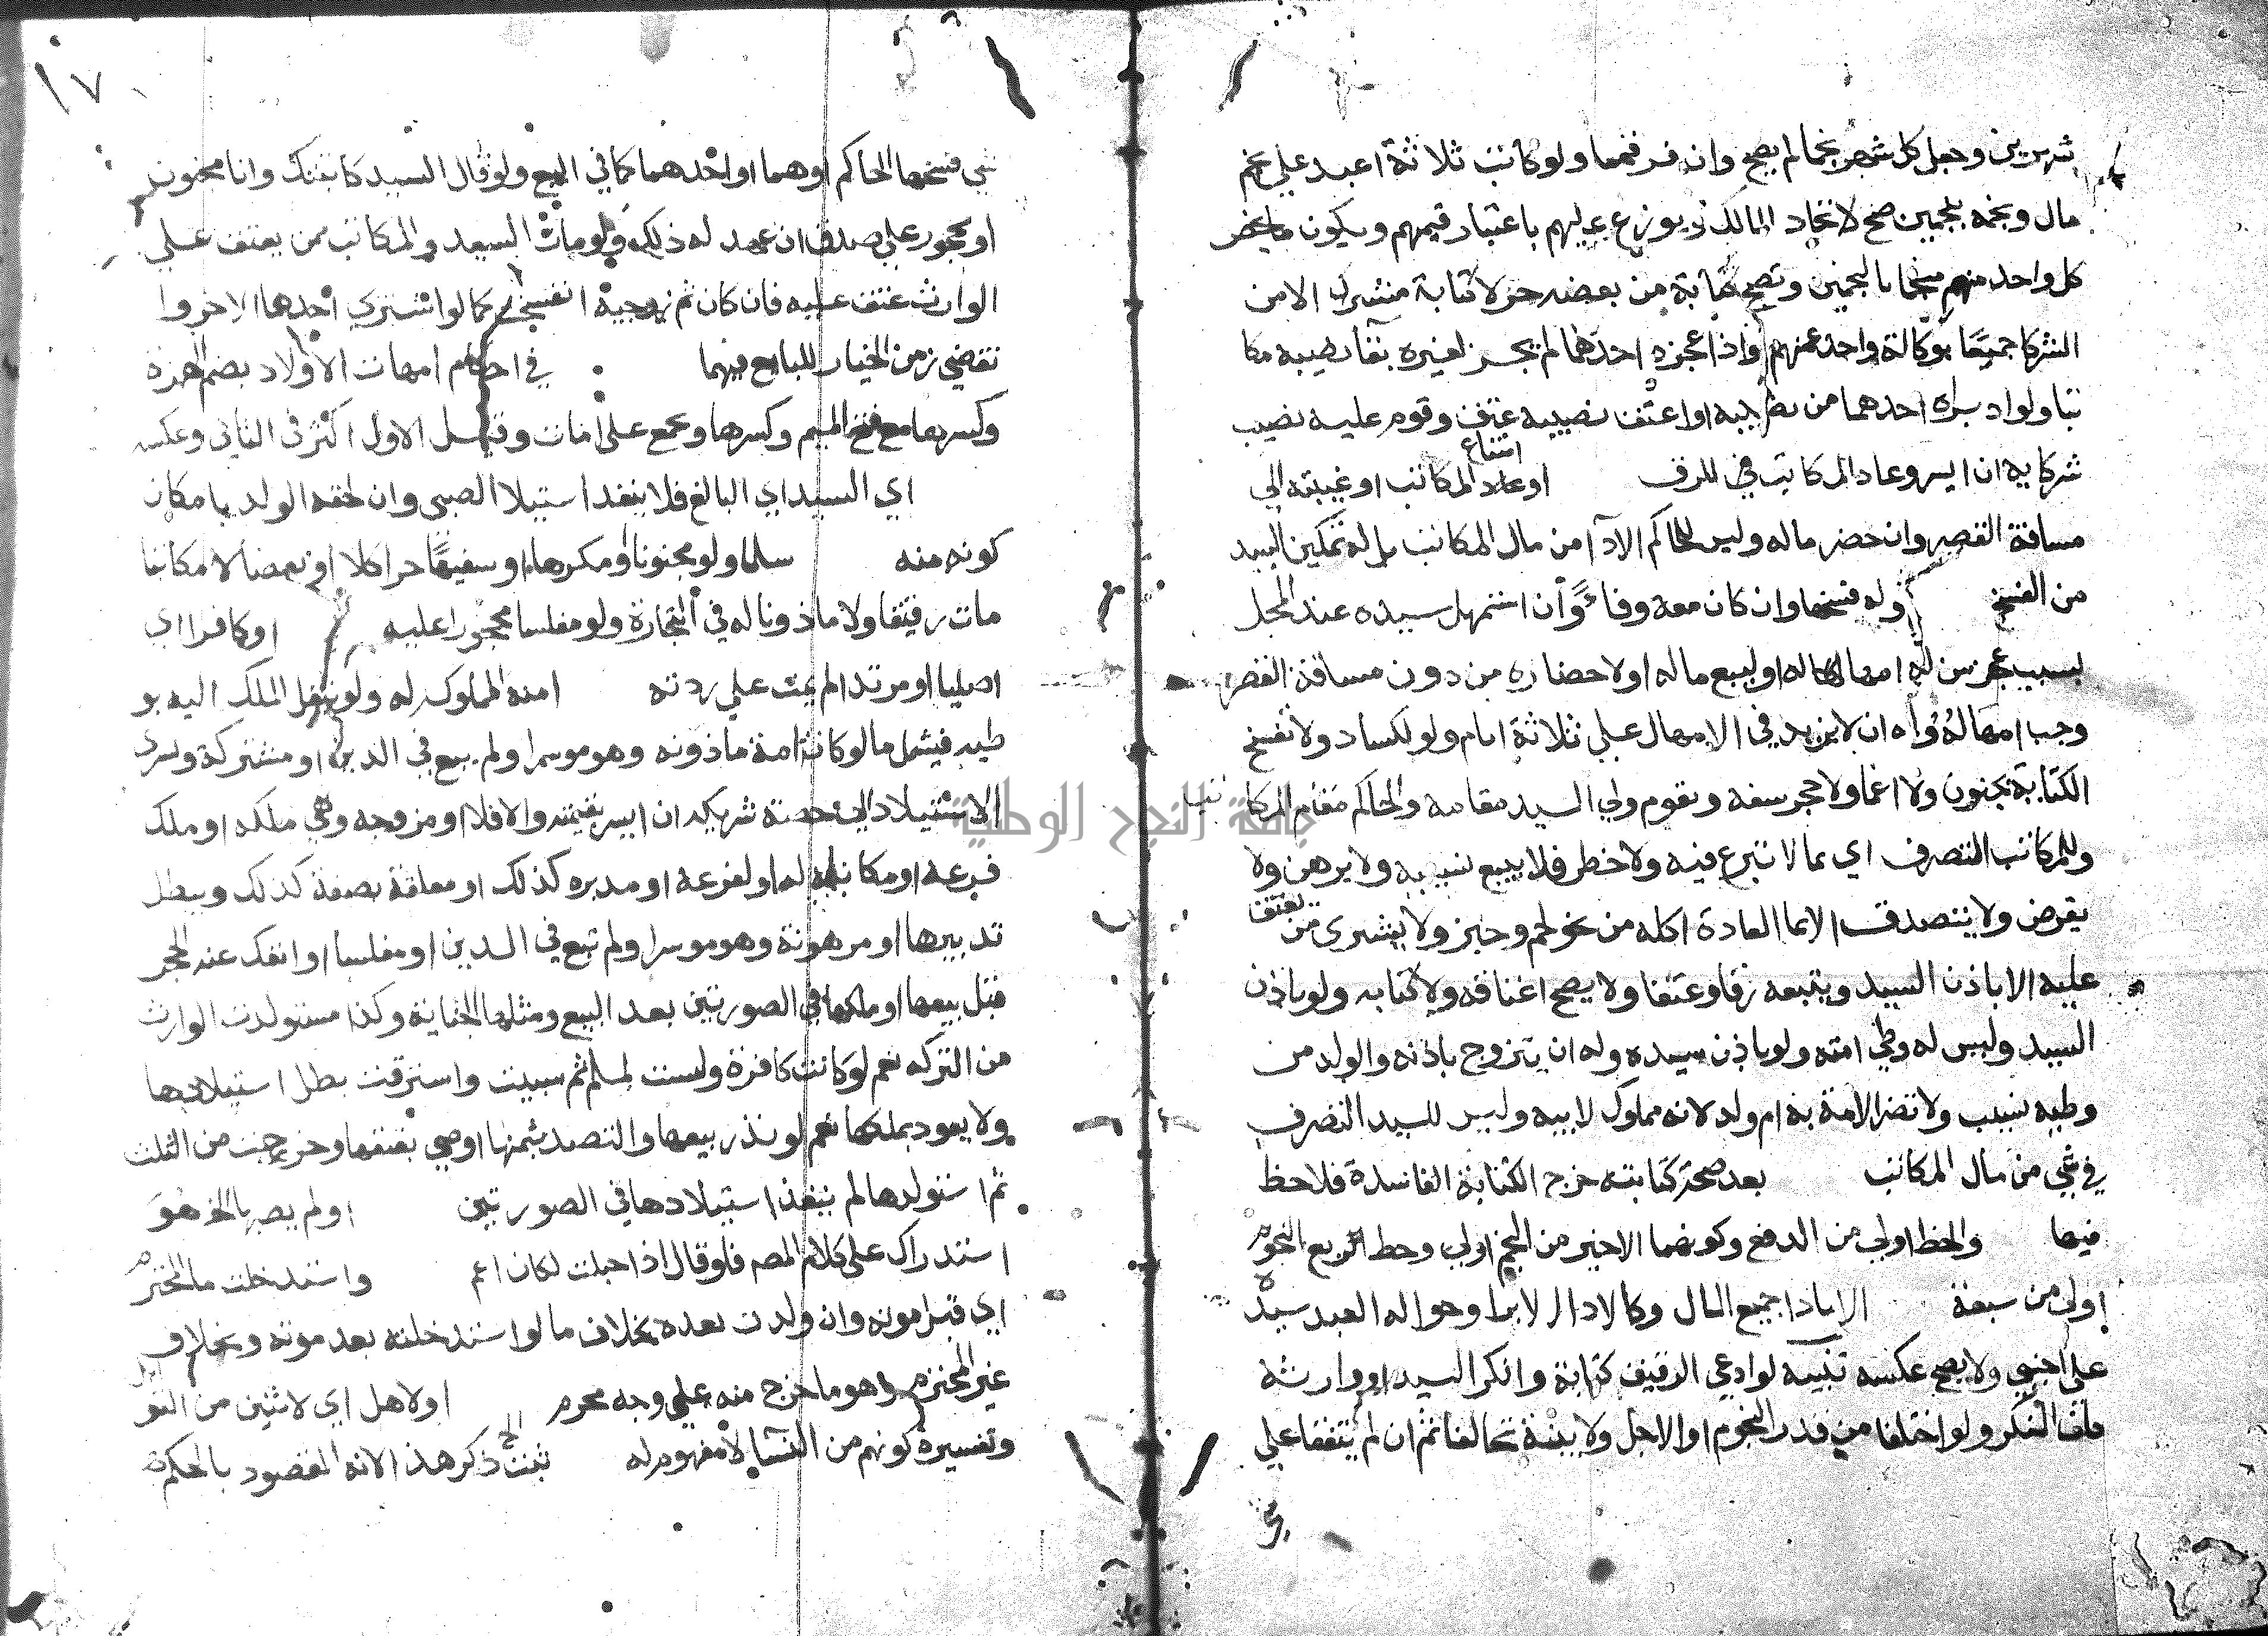 شهرين وجعل كل شهر نجما لم يصح وان فرقهما ولو كاتب ثلاثة اعبد علي نجم
مال ونجمه بنجمين صح لاتحاد المالك ويوزع عليهم باعتبار قيمهم ويكون ما يخص
كل واحد منهم منجما بالنجمين وتصح كتابة من بعضه حر لا كتابة مشترك الا من
الشركا جميعا بوكالة واحد عنهم واذا عجزه احدهما لم يجز لغيره بقا نصيبه مكا
تبا ولو ابراه احدهما من نصيبه او اعتق نصيبه عتق وقوم عليه نصيب
شريكه ان ايسر وعاد المكاتب للرق او عاد المكاتب او غيبته الي
امتناع
مسافة القصر وان حضر ماله وليس للحاكم الادا من مال المكاتب بل له تمكين السيد
من الفسخ وله فسخها وان كان معه وفاء وان استمهل سيده عند المحل
بسبب عجز سن له امهاله او لبيع ماله او لاحضاره من دون مسافة القصر
وجب امهاله وله ان لا يزيد في الامهال علي ثلاثة ايام ولو لكساد ولا تفسخ
الكتابة بجنون ولا اغما ولا حجر سفه ويقوم ولي السيد مقامه والحاكم مقام المكا تب
وللمكاتب التصرف اي بما لا تبرع فيه ولا خطر فلا يبيع نسيه ولا يرهن ولا
يقرض ولا يتصدق الا بما العادة اكله من نحو لحم وخبز ولا يشتري من
يعتق
عليه الا باذن السيد ويتبعه رقا وعتقا ولا يصح اعتاقه ولا كتابه ولو باذن
السيد وليس له وطي امته ولو باذن سيده وله ان يتزوج باذنه والولد من
وطيه نسيب ولا تصير الامة به ام ولد لانه مملوك لابيه وليس للسيد التصرف
في شي من مال المكاتب بعد صحة كتابته خرج الكتابة الفاسدة فلا حط
فيها والحط اولي من الدفع وكونهما الاخير من النجم اولي وحط الربع النجوم
اولي من سبعة الا بادا جميع المال وكالادا الابرا وحواله العبد سيده
علي اجنبي ولا يصح عكسه تنبيه لو ادعي الرقيق كتابة وانكر السيد او وارثه
حلف المنكر ولو اختلفا في قدر النجوم او الاجل ولا بينة تحالفا ثم ان لم يتفقا علي
شي
١٧
شي فسخها الحاكم او هما او احدهما كما في البيع ولو قال السيد كاتبتك وانا مجنون
او محجور علي صدق ان عهد له ذلك ولو مات السيد والمكاتب ممن يعتق علي
الوارث عتق عليه فان كان ثم زوجية انفسخ كما لو اشتري احدهما الاخر وا
نقضي زمن الخيار للبايع فيهما في احكام امهات الاولاد بضم الهمزة
وكسرها مع فتح الميم وكسرها وتجمع علي امات وقيل الاول اكثر في الناس وعكسه
اي السيد اي البالغ فلا ينفذ استيلا الصبي وان لحقه الولد بامكان
كونه منه سلما ولو مجنونا او مكرها او سفيها حرا كلا او بعضا لا مكاتبا
مات رقيقا ولا ماذونا له في التجارة ولو مفلسا محجورا عليه او كافرا اي
اصليا او مرتدا لم يمت علي ردته امته المملوكه له ولو بنقل الملك اليه بو
طيه فيشمل ما لو كانت امة ماذونه وهو موسرا ولم يبع في الدين او مشتركة وسري
الاستيلاد الي حصته شريكه ان ايسر بقيمته والا فلا او مزوجه وهي ملكه او ملك
فرعه او مكاتبة له او لفرعه او مدبره كذلك او معلقة بصفة كذلك ويبطل
تدبيرها او مرهونة وهو موسرا ولم تبع في الدين او مفلسا وانفك عنه الحجر
قبل بيعها او ملكها في الصورتين بعد البيع ومثلها الجانية وكذا مستولدت الوارث
من التركه نعم لو كانت كافرة وليست لمسلم ثم سبيت واسترقت بطل استيلادها
ولا يعود بملكها نعم لو نذر بيعها والتصدق بثمنها اوصي بعتقها وخرجت من الثلث
ثم استولدها لم ينفذ استيلادها في الصورتين او لم يصبها الخ هو
استدراك علي كلام المصه فلو قال اذا حبلت لكان اعم واستدخلت ماالمحترم
اي قبل موته وان ولدت بعده بخلاف ما لو استدخلته بعد موته وبخلاف
غير المحترم وهو ما خرج منه علي وجه محرم او لا هل اي لاثنين من القو ابل
وتفسيره كونهم من النسا لا مفهوم له ثبت الخ ذكر هذا لانه المقصود بالحكم